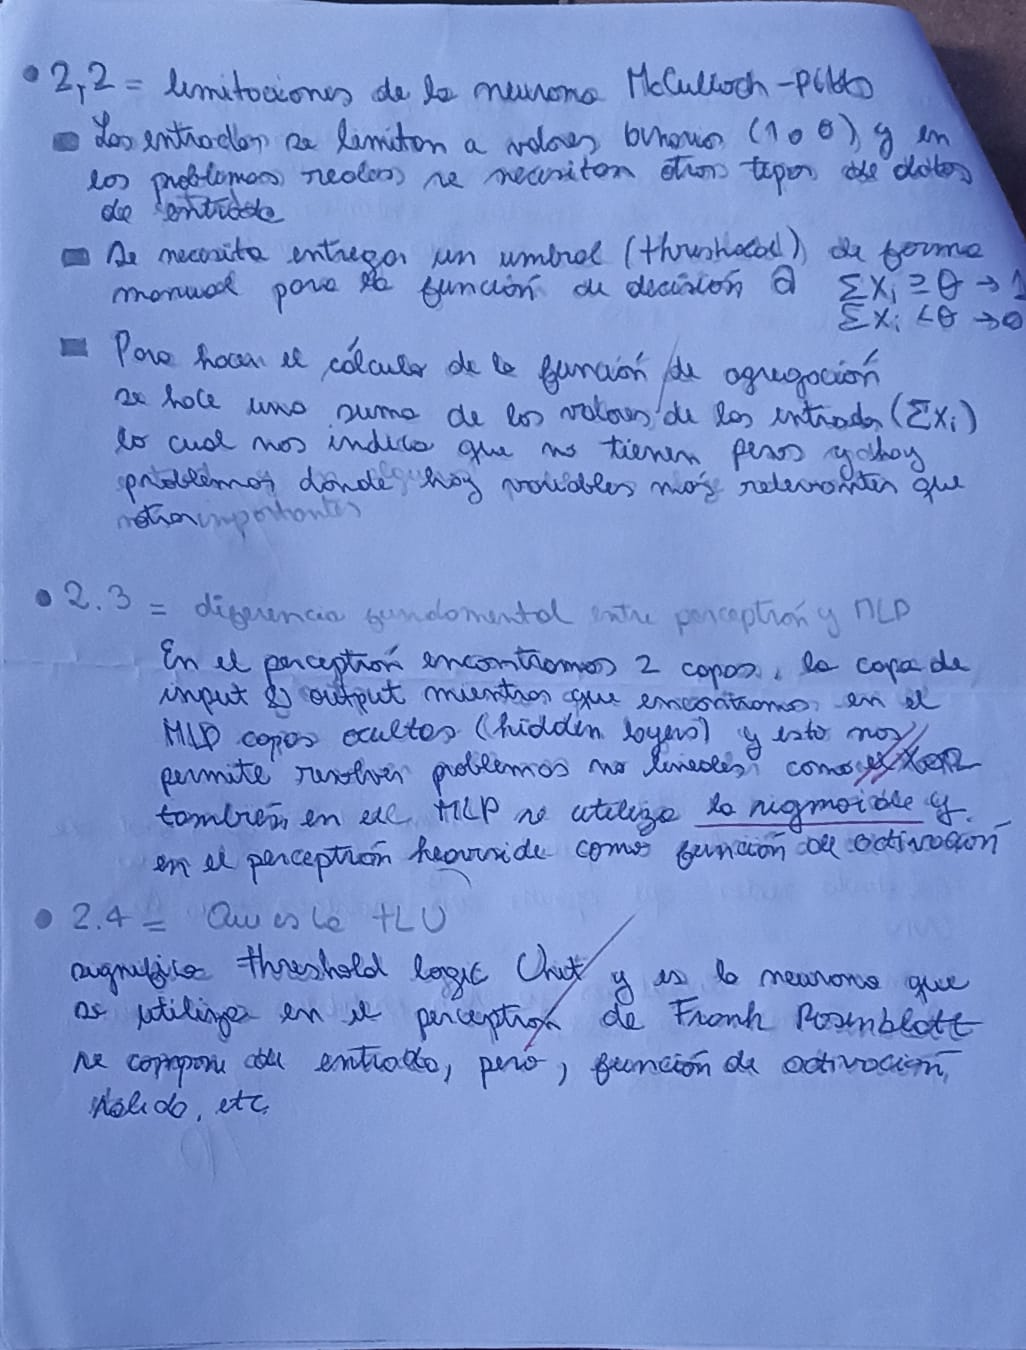 • 2,2 = limitaciones de la neurona McCulloch-Pitts
Las entradas se limitan a valores binarios (1 o 0) y en
los problemas reales se necesitan otros tipos de datos
de entrada
Se necesita entregar un umbral (threshold) de forma
manual para la función de decisión ∑xᵢ ≥ θ → 1
∑xᵢ < θ → 0
Para hacer el cálculo de la función de agregación
se hace una suma de los valores de las entradas (∑xᵢ)
lo cual nos indica que no tienen pesos y hay
problemas donde hay variables más relevantes que
otras importantes
• 2.3 = diferencia fundamental entre perceptrón y MLP
En el perceptrón encontramos 2 capas, la capa de
input y output mientras que encontramos en el
MLP capas ocultas (hidden layers) y esto nos
permite resolver problemas no lineales como el XOR
también en el MLP se utiliza la sigmoide y
en el perceptrón heaviside como función de activación
• 2.4 = Que es la TLU
significa threshold logic Unit y es la neurona que
se utiliza en el perceptron de Frank Rosenblatt
se compone de entrada, peso, función de activación,
salida, etc.